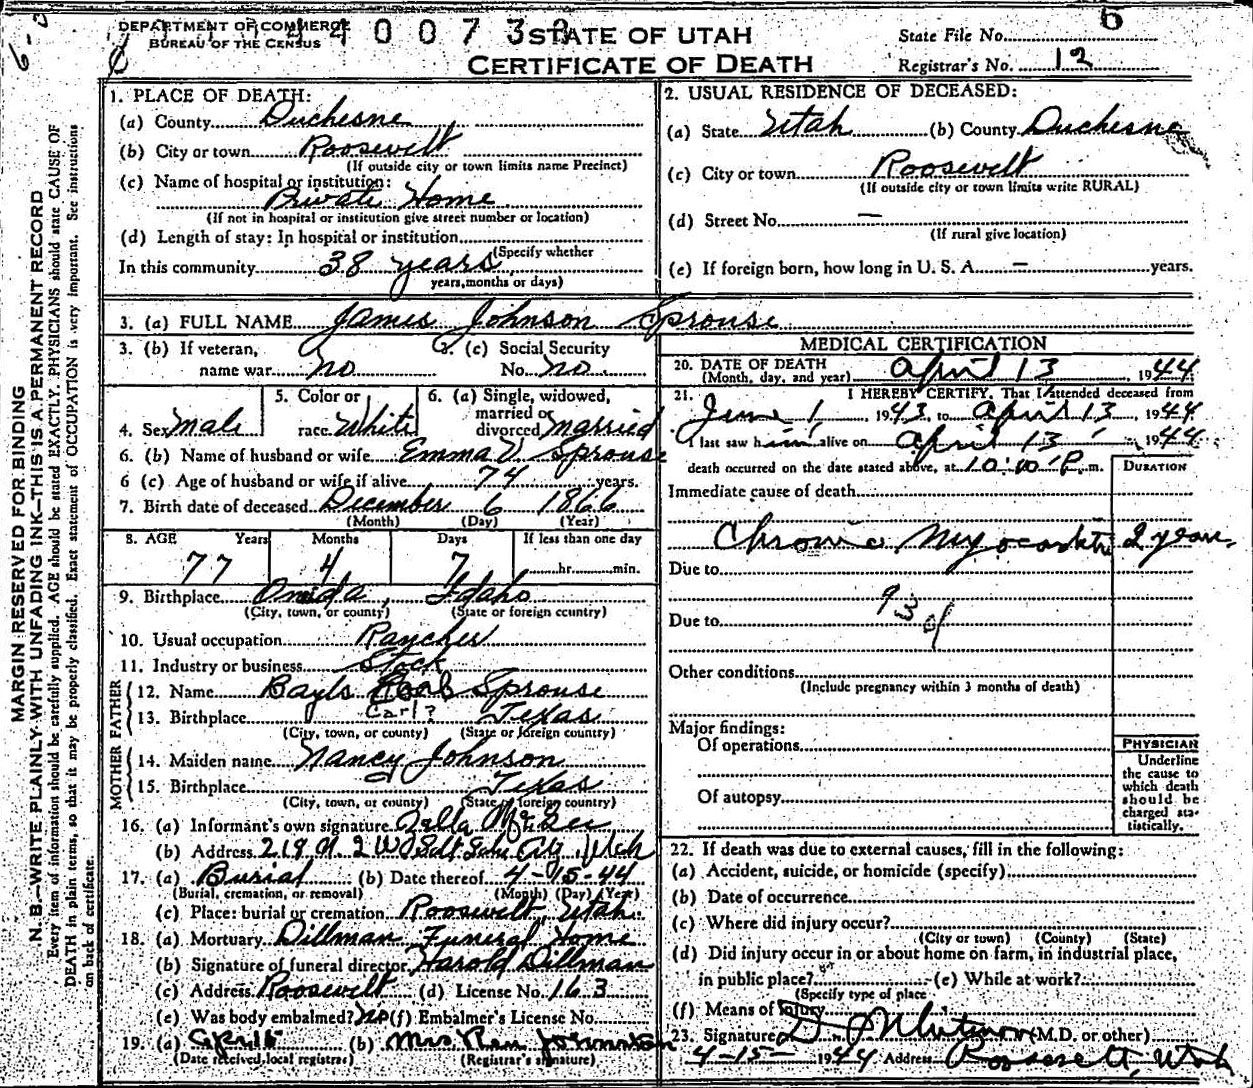 DEPARTMENT OF COMMERCE
BUREAU OF THE CENSUS
STATE OF UTAH
CERTIFICATE OF DEATH
State File No. 6
Registrar's No. 12
MARGIN RESERVED FOR BINDING
N. B.—WRITE PLAINLY WITH UNFADING INK—THIS IS A PERMANENT RECORD
Every item of information should be carefully supplied. AGE should be stated EXACTLY. PHYSICIANS should state CAUSE OF
DEATH in plain terms, so that it may be properly classified. Exact statement of OCCUPATION is very important. See instructions
on back of certificate.
1. PLACE OF DEATH:
(a) County Duchesne
(b) City or town Roosevelt
(If outside city or town limits name Precinct)
(c) Name of hospital or institution:
Private Home
(If not in hospital or institution give street number or location)
(d) Length of stay: In hospital or institution
(Specify whether
In this community 38 years
years, months or days)
2. USUAL RESIDENCE OF DECEASED:
(a) State Utah (b) County Duchesne
(c) City or town Roosevelt
(If outside city or town limits write RURAL)
(d) Street No. —
(If rural give location)
(e) If foreign born, how long in U. S. A. — years.
3. (a) FULL NAME James Johnson Sprouse
3. (b) If veteran, name war no
3. (c) Social Security No. no.
4. Sex Male
5. Color or race White
6. (a) Single, widowed, married or divorced Married
6. (b) Name of husband or wife Emma V. Sprouse
6 (c) Age of husband or wife if alive 74 years.
7. Birth date of deceased December 6 1866
(Month) (Day) (Year)
8. AGE Years Months Days If less than one day
77 4 7 hr. min.
9. Birthplace Idaho
(City, town, or county) (State or foreign country)
10. Usual occupation Rancher
11. Industry or business Stock
FATHER
12. Name Bayls Sprouse
Carl?
13. Birthplace Texas
(City, town, or county) (State or foreign country)
MOTHER
14. Maiden name Nancy Johnson
15. Birthplace Texas
(City, town, or county) (State or foreign country)
16. (a) Informant's own signature Zella McGee
(b) Address 218 N. 2 W Salt Lake City, Utah
17. (a) Burial (b) Date thereof 4-15-44
(Burial, cremation, or removal) (Month) (Day) (Year)
(c) Place: burial or cremation Roosevelt, Utah.
18. (a) Mortuary Dillman Funeral Home
(b) Signature of funeral director Harold Dillman
(c) Address Roosevelt (d) License No. 163
(e) Was body embalmed? no (f) Embalmer's License No.
19. (a) (b) Mrs Johnston
(Date received local registrar) (Registrar's signature)
MEDICAL CERTIFICATION
20. DATE OF DEATH
(Month, day, and year) April 13, 1944
21. I HEREBY CERTIFY, That I attended deceased from
June 1 1943, to April 13, 1944
I last saw him alive on April 13, 1944
death occurred on the date stated above, at 10:00 P. m.
DURATION
Immediate cause of death
Chronic Myocarditis 2 years
Due to
93d
Due to
Other conditions
(Include pregnancy within 3 months of death)
Major findings:
Of operations
Of autopsy
PHYSICIAN
Underline
the cause to
which death
should be
charged sta-
tistically.
22. If death was due to external causes, fill in the following:
(a) Accident, suicide, or homicide (specify)
(b) Date of occurrence
(c) Where did injury occur?
(City or town) (County) (State)
(d) Did injury occur in or about home on farm, in industrial place,
in public place? (e) While at work?
(Specify type of place
(f) Means of Injury
23. Signature (M.D. or other)
4-15- 1944 Address Roosevelt, Utah